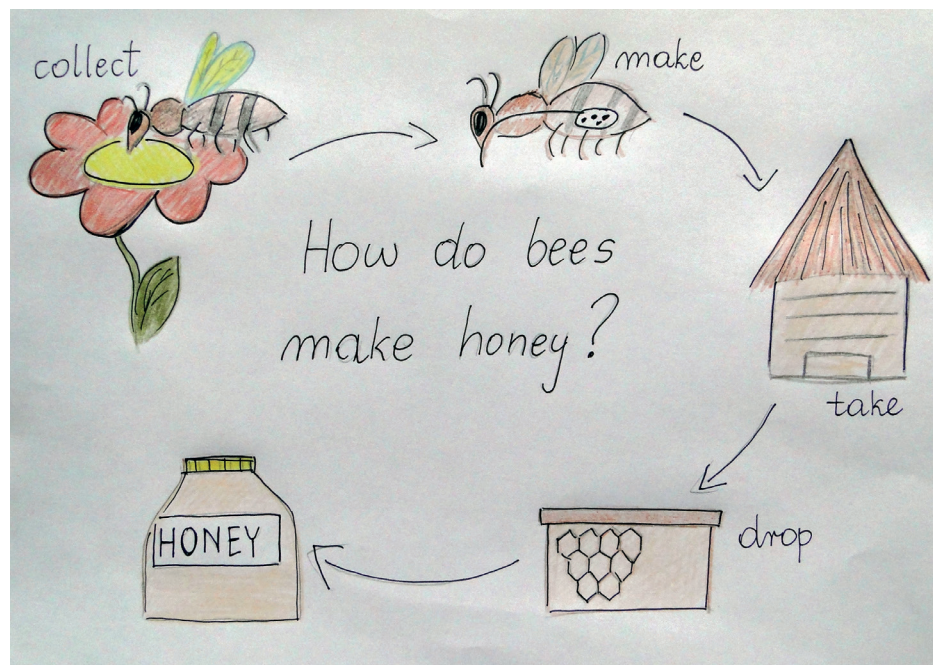 collect
make
How do bees
make honey?
take
drop
HONEY